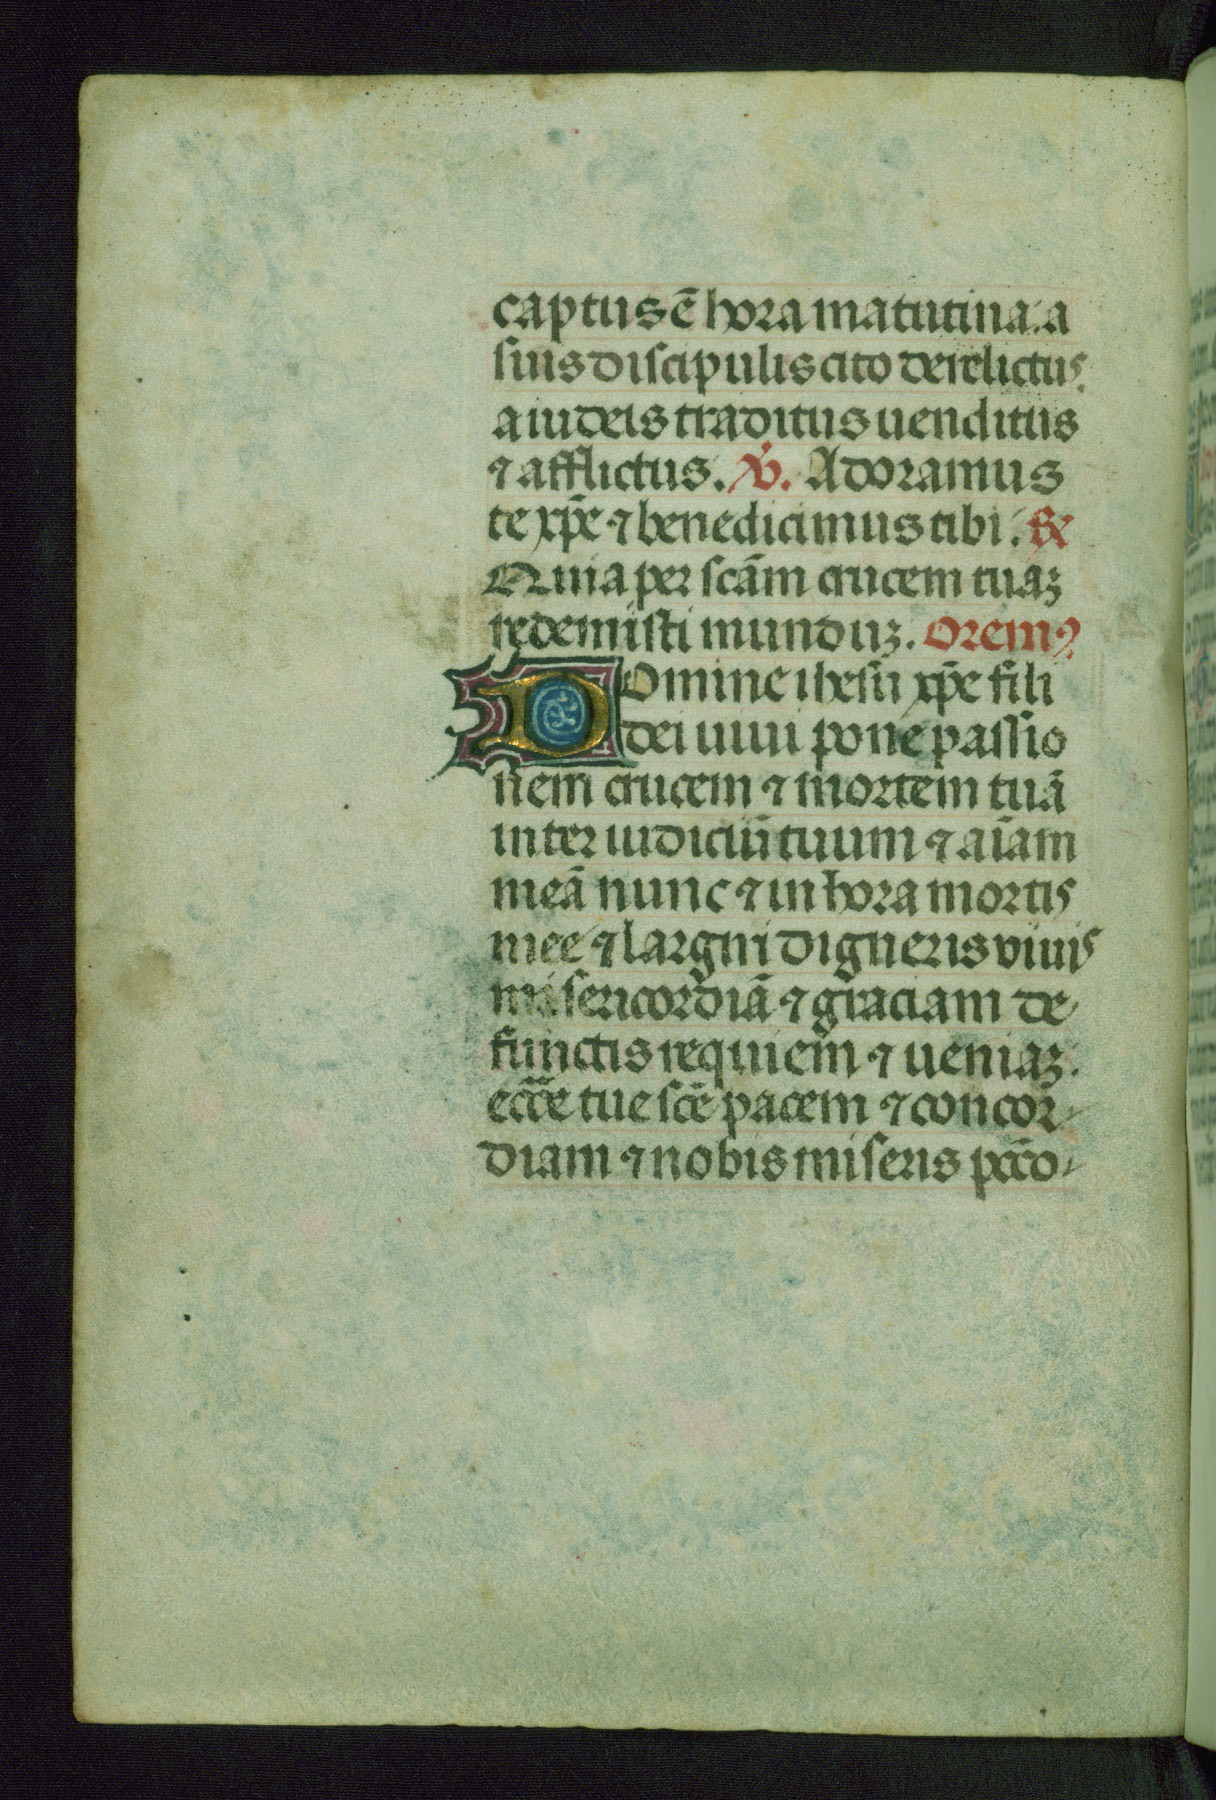 captus ē hora matutina. a
suis discipulis cito derelictus.
a iudeis traditus uenditus
⁊ afflictus. ℣. Adoramus
te xp̄e ⁊ benedicimus tibi. ℟
Quia per scām crucem tuaꝫ
redemisti munduꝫ. Oremꝰ
Domine ihesū xp̄e fili
dei uiui pone passio
nem crucem ⁊ mortem tuā
inter iudiciū tuum ⁊ aīam
meā nunc ⁊ in hora mortis
mee ⁊ largiri digneris viuis
misericordiā ⁊ graciam de
functis requiem ⁊ ueniaꝫ.
ecc̄e tue scē pacem ⁊ concor
diam ⁊ nobis miseris pcc̄o